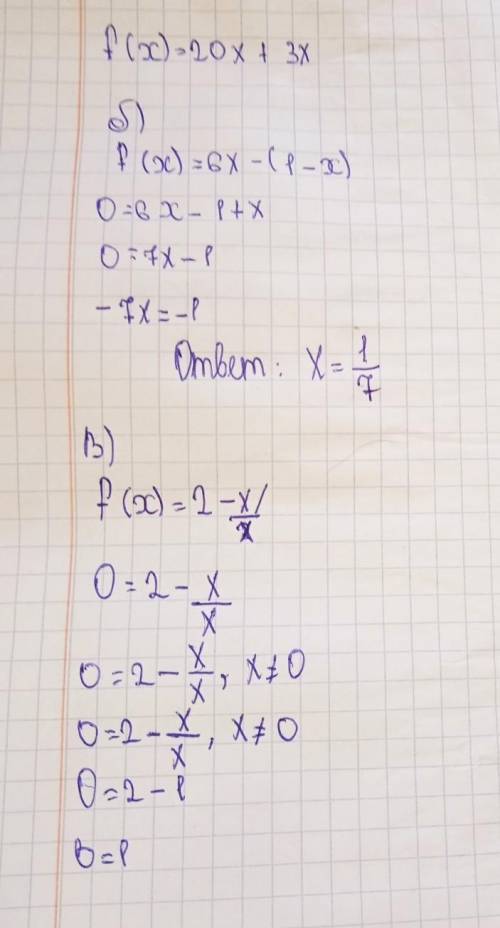 f(x)=20x+3x
б)
f(x)=6x-(1-x)
0=6x-1+x
0=7x-1
-7x=-1
Ответ: x=1/7
В)
f(x)=2-x/x
0=2-x/x
0=2-x/x, x≠0
0=2-x/x, x≠0
0=2-1
0=1